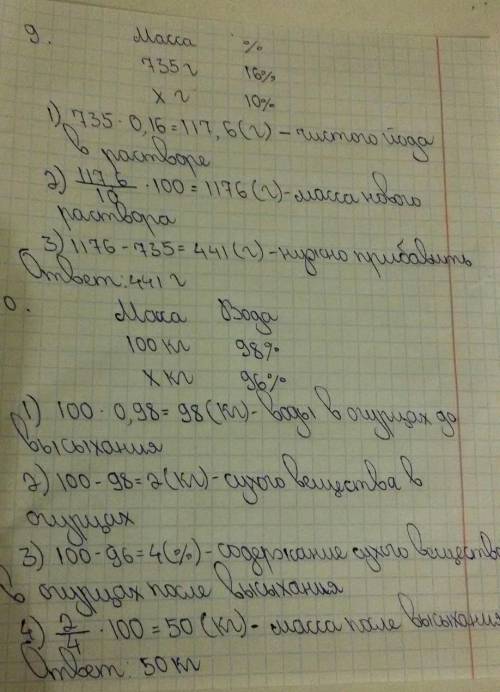 9. Масса %
735 г 16%
х г 10%
1) 735 · 0,16 = 117,6 (г) – чистого йода
в растворе
2) 117 6/10 · 100 = 1176 (г) – масса нового
раствора
3) 1176 – 735 = 441 (г) – нужно прибавить
Ответ: 441 г
0. Масса Вода
100 кг 98%
х кг 96%
1) 100 · 0,98 = 98 (кг) – воды в огурцах до
высыхания
2) 100 – 98 = 2 (кг) – сухого вещества в
огурцах
3) 100 – 96 = 4 (%) – содержание сухого вещества
в огурцах после высыхания
4) 2/4 · 100 = 50 (кг) – масса после высыхания
Ответ: 50 кг